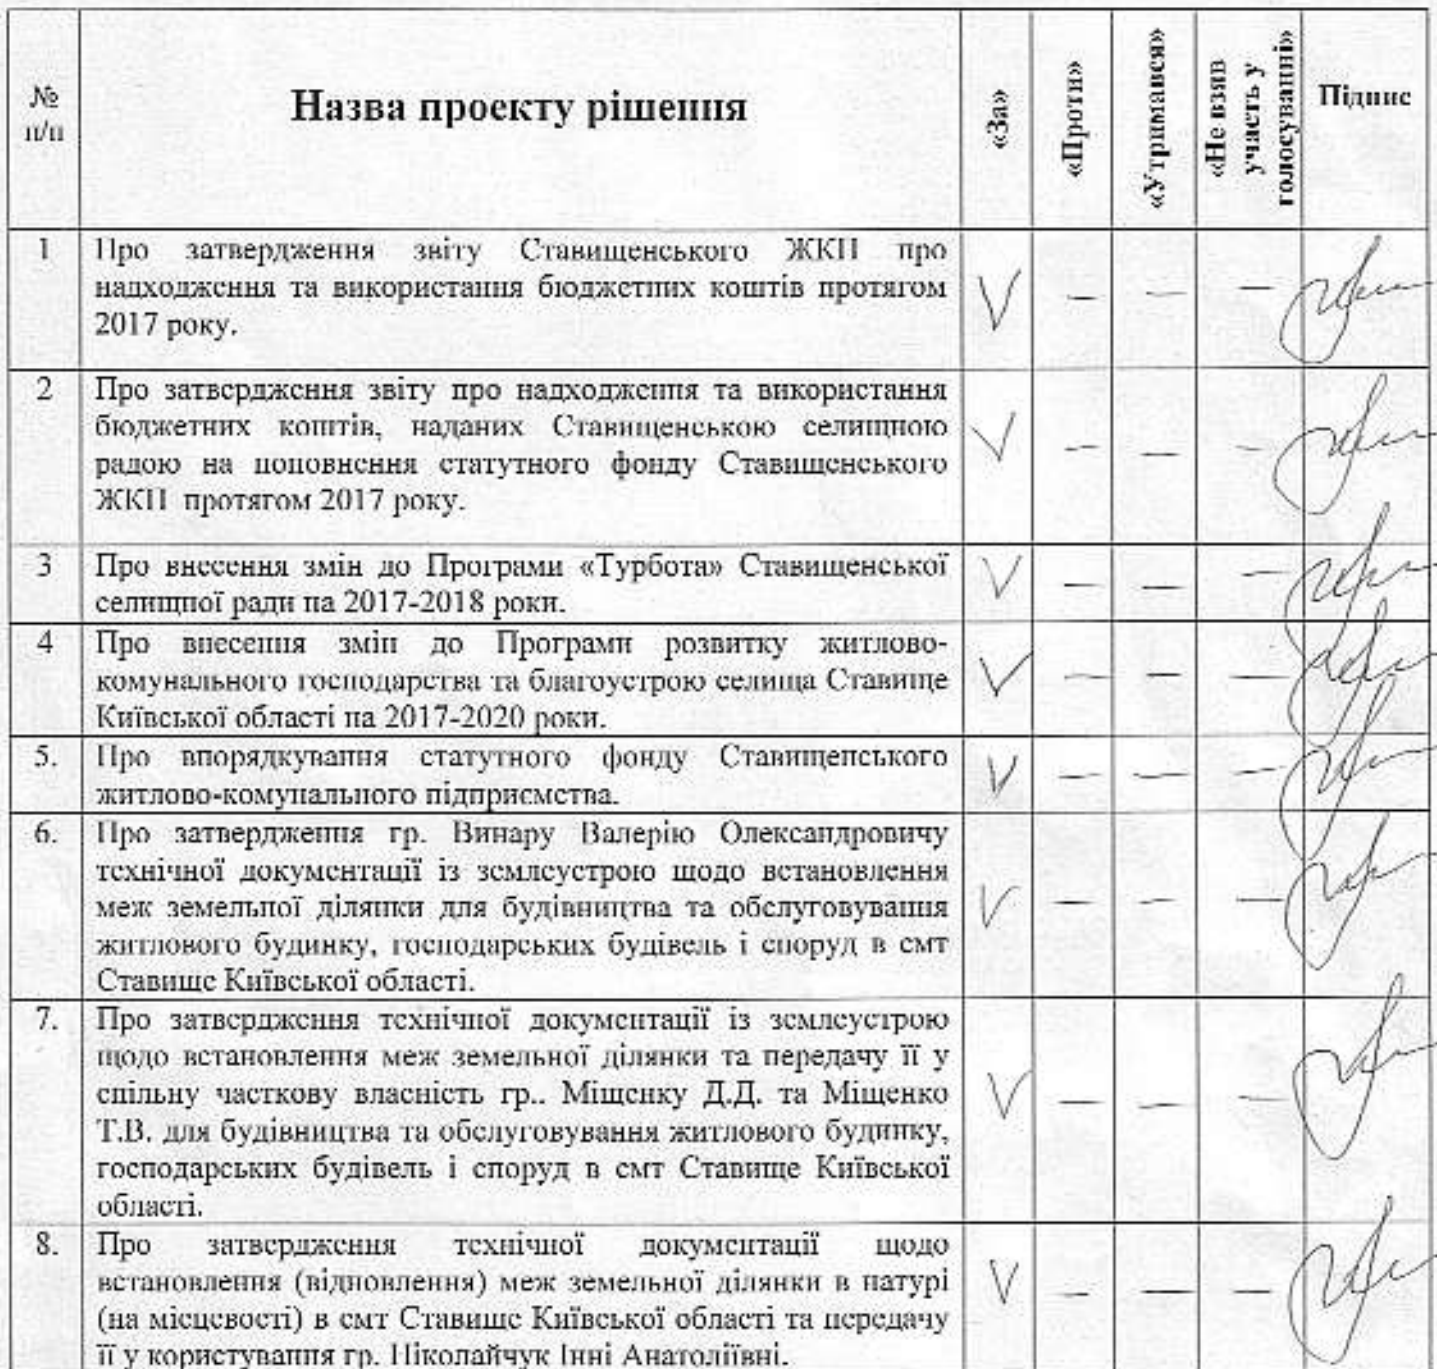 №
п/п
Назва проекту рішення
«За»
«Проти»
«Утримався»
«Не взяв
участь у
голосуванні»
Підпис
1
Про затвердження звіту Ставищенського ЖКП про
надходження та використання бюджетних коштів протягом
2017 року.
V — — —
2
Про затвердження звіту про надходження та використання
бюджетних коштів, наданих Ставищенською селищною
радою на поповнення статутного фонду Ставищенського
ЖКП протягом 2017 року.
V — — —
3
Про внесення змін до Програми «Турбота» Ставищенської
селищної ради на 2017-2018 роки.
V — — —
4
Про внесення змін до Програми розвитку житлово-
комунального господарства та благоустрою селища Ставище
Київської області на 2017-2020 роки.
V — — —
5.
Про впорядкування статутного фонду Ставищенського
житлово-комунального підприємства.
V — — —
6.
Про затвердження гр. Винару Валерію Олександровичу
технічної документації із землеустрою щодо встановлення
меж земельної ділянки для будівництва та обслуговування
житлового будинку, господарських будівель і споруд в смт
Ставище Київської області.
V — — —
7.
Про затвердження технічної документації із землеустрою
щодо встановлення меж земельної ділянки та передачу її у
спільну часткову власність гр.. Міщенку Д.Д. та Міщенко
Т.В. для будівництва та обслуговування житлового будинку,
господарських будівель і споруд в смт Ставище Київської
області.
V — — —
8.
Про затвердження технічної документації щодо
встановлення (відновлення) меж земельної ділянки в натурі
(на місцевості) в смт Ставище Київської області та передачу
її у користування гр. Ніколайчук Інні Анатоліївні.
V — — —